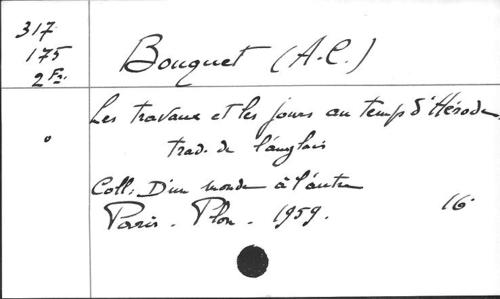 317
175
2 Fr.
Bouquet (A.C.)
Les travaux et les jours au temps d'Hérode.
trad. de l'anglais
Coll: D'un monde à l'autre
Paris. Plon. 1959. 16°